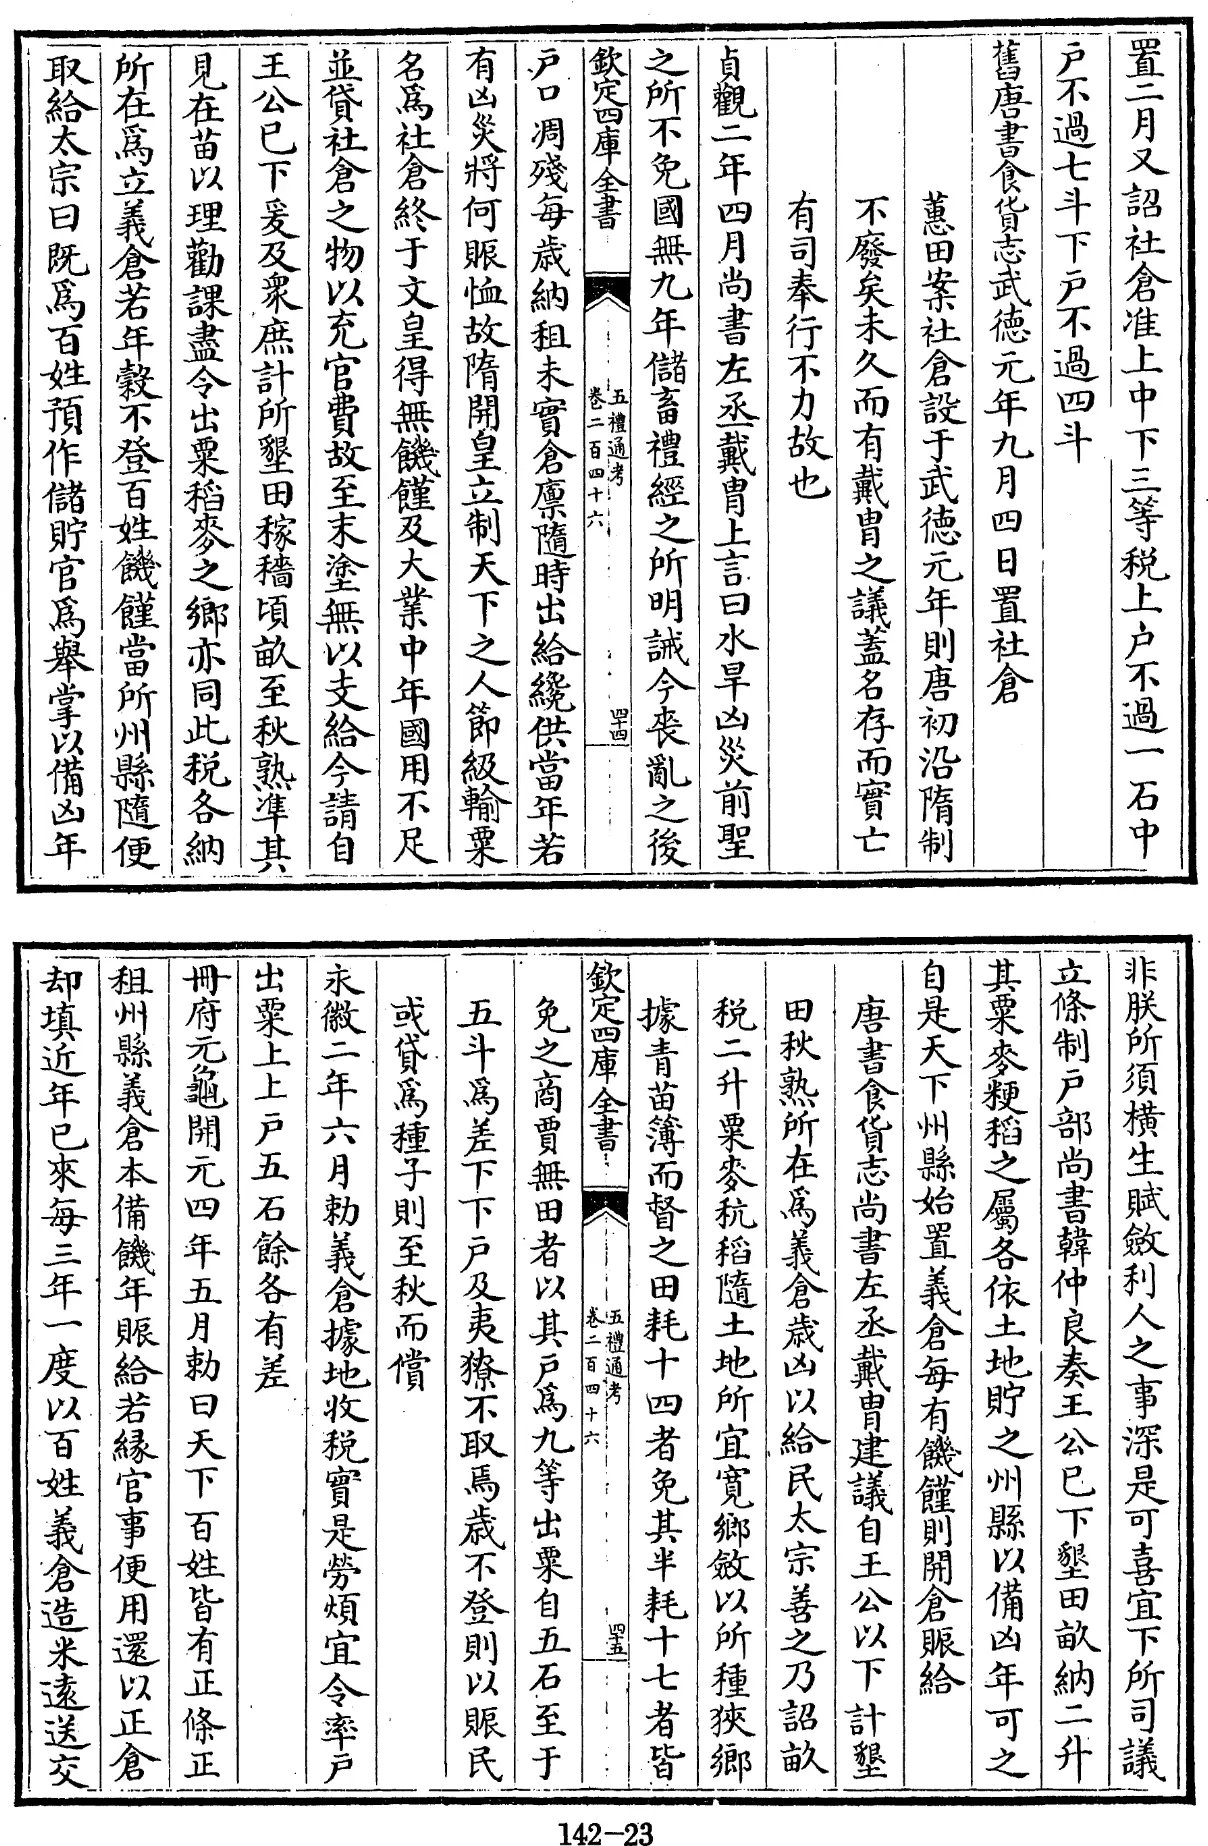 置二月又詔社倉准上中下三等税上户不過一石中
户不過七斗下户不過四斗
舊唐書食貨志武徳元年九月四日置社倉
蕙田案社倉設于武徳元年則唐初沿隋制
不廢矣未久而有戴胄之議蓋名存而實亡
有司奉行不力故也
貞觀二年四月尚書左丞戴胄上言曰水旱凶災前聖
之所不免國無九年儲畜禮經之所明誡今喪亂之後
欽定四庫全書
五禮通考
卷二百四十六
四十四
户口凋殘每歳納租未實倉廪隨時出給纔供當年若
有凶災將何賑恤故隋開皇立制天下之人節級輸粟
名爲社倉終于文皇得無饑饉及大業中年國用不足
並貸社倉之物以充官費故至末塗無以支給今請自
王公已下爰及衆庶計所墾田稼穡頃畝至秋熟準其
見在苗以理勸課盡令出粟稻麥之鄉亦同此税各納
所在爲立義倉若年穀不登百姓饑饉當所州縣隨便
取給太宗曰既爲百姓預作儲貯官爲舉掌以備凶年
非朕所須橫生賦斂利人之事深是可喜宜下所司議
立條制户部尚書韓仲良奏王公已下墾田畝納二升
其粟麥粳稻之屬各依土地貯之州縣以備凶年可之
自是天下州縣始置義倉每有饑饉則開倉賑給
唐書食貨志尚書左丞戴胄建議自王公以下計墾
田秋熟所在爲義倉歳凶以給民太宗善之乃詔畝
税二升粟麥秔稻隨土地所宜寛鄉斂以所種狹鄉
據青苗簿而督之田耗十四者免其半耗十七者皆
欽定四庫全書
五禮通考
卷二百四十六
四十五
免之商賈無田者以其户爲九等出粟自五石至于
五斗爲差下下户及夷獠不取焉歳不登則以賑民
或貸爲種子則至秋而償
永徽二年六月勅義倉據地收税實是勞煩宜令率户
出粟上上户五石餘各有差
冊府元龜開元四年五月勅曰天下百姓皆有正條正
租州縣義倉本備饑年賑給若縁官事便用還以正倉
却填近年已來每三年一度以百姓義倉造米遠送交
142-23